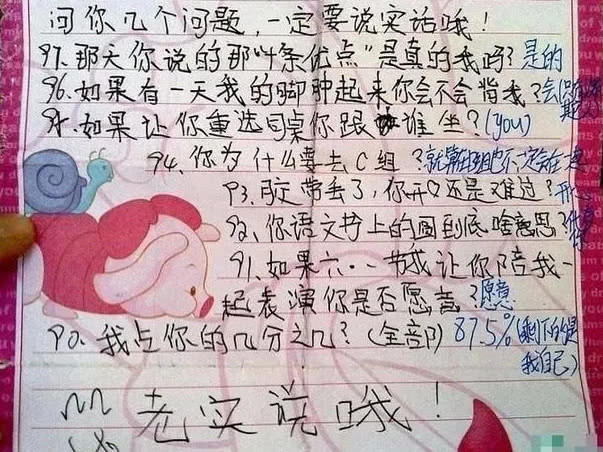 问你几个问题，一定要说实话哦！
97.那天你说的那"十条优点"是真的我吗？是的
96.如果有一天我的脚肿起来你会不会背我？会
95.如果让你重选同桌你跟谁坐？(you)
94.你为什么要去C组？就算在B组也不一定会在一起
93.胶带丢了，你开心还是难过？开心
92.你语文书上的圆到底啥意思？
91.如果六·一节我让你陪我一
起表演你是否愿意？愿意
90.我占你的几分之几？(全部) 87.5%(剩下的是
我自己)
老实说哦！